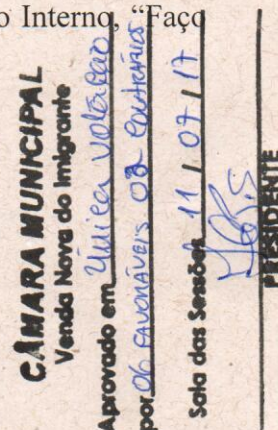 o Interno, “Faço
CÂMARA MUNICIPAL
Venda Nova do Imigrante
Aprovado em Única votação
por 06 FAVORÁVEIS 02 CONTRÁRIOS
Sala das Sessões 11 / 07 / 17
PRESIDENTE